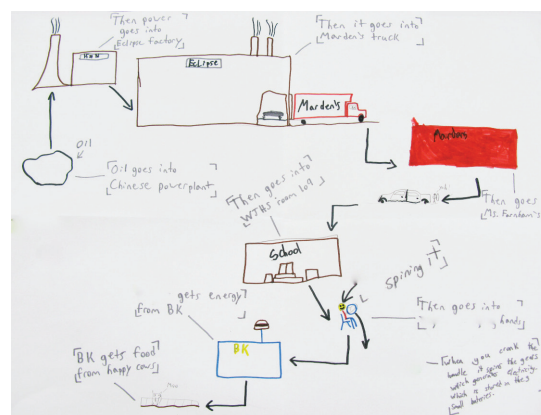 Then power
goes into
Eclipse factory
Then it goes into
Marden's truck
Eclipse
Marden's
Mardens
OIl
Oil goes into
Chinese powerplant
Then goes into
WJHS room 109
Then goes
Ms. Farnham's
School
Spining it
gets energy
from BK
Then goes into
hands
BK
BK gets food
from happy cows
When you crank the
handle it spins the gears
which generate electricity
which is stored in the 3
small batteries.